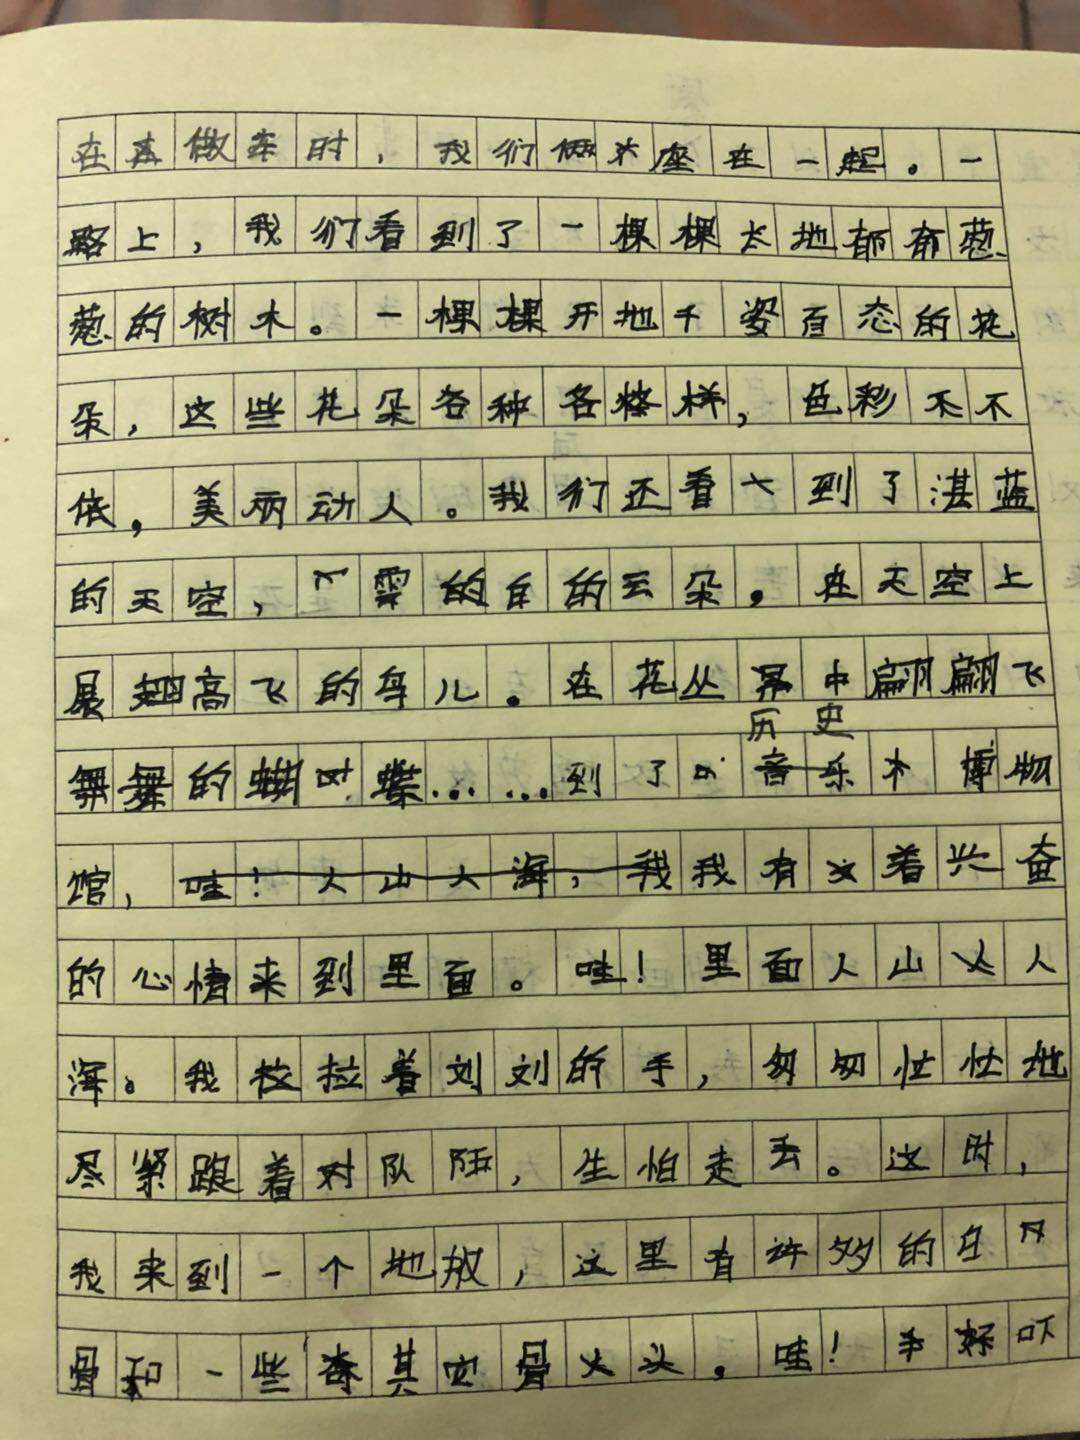 在做车时，我们俩座在一起。一
路上，我们看到了一棵棵长地郁郁葱
葱的树木。一棵棵开地千姿百态的花
朵，这些花朵各种各样，色彩不不
依，美丽动人。我们还看到了湛蓝
的天空，雪的白的云朵。在天空上
展翅高飞的鸟儿。在花丛中翩翩飞
舞舞的蝴蝶……到了历史博物
馆，哇！人山人海，我我有着兴奋
的心情来到里面。哇！里面人山人
海。我拉着刘刘的手，匆匆忙忙地
尽紧跟着队陌，生怕走丢。这时，
我来到一个地放，这里有许多的白
骨和一些其它骨头。哇！好吓